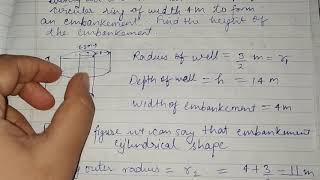 circular ring of width 4m to form
an embankement Find the height of
the embankement
Radius of well = 3/2 m = r₁
Depth of wall = h = 14m
Width of embankement = 4m
figure we can say that embankement
cylindrical shape
outer radius = r₂ = 4+3/2 = 11/2 m